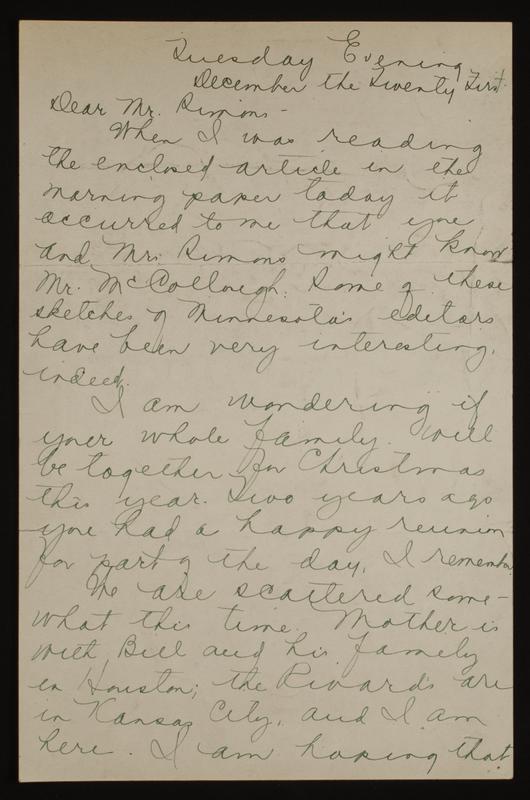 Tuesday Evening
December the Twenty First.
Dear Mr. Simons -
When I was reading
the enclosed article in the
morning paper today it
occurred to me that you
and Mrs. Simons might know
Mr. McCollough. Some of these
sketches of Minnesota's editors
have been very interesting,
indeed.
I am wondering if
your whole family will
be together for Christmas
this year. Two years ago
you had a happy reunion
for part of the day, I remember.
We are scattered some-
what this time. Mother is
with Bill and his family
in Houston; the Rivards are
in Kansas City, and I am
here. I am hoping that